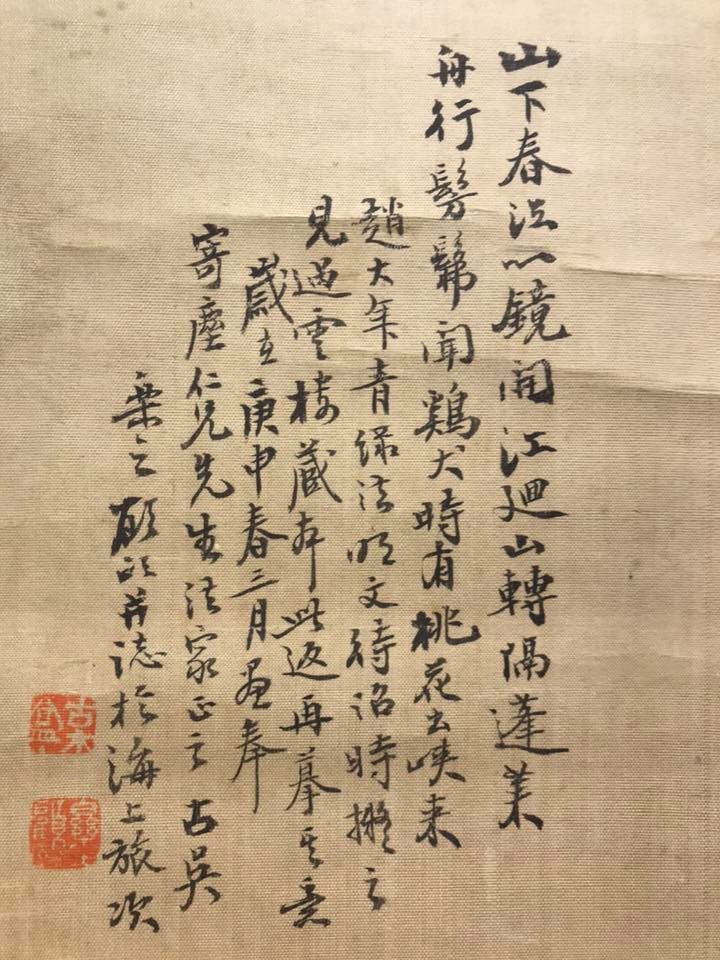 山下春以鏡開江迴山轉隔蓬萊
舟行髣髴聞鷄犬時有桃花出峽来
趙大年青綠法明文待詔時擬之
見過雲樓藏本此返再摹其意
歲在庚申春三月畫奉
寄塵仁兄先生法家正之古吳
顧并誌於海上旅次